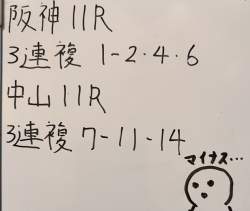 阪神11R
3連複 1-2・4・6
中山11R
3連複 7-11-14
マイナス…